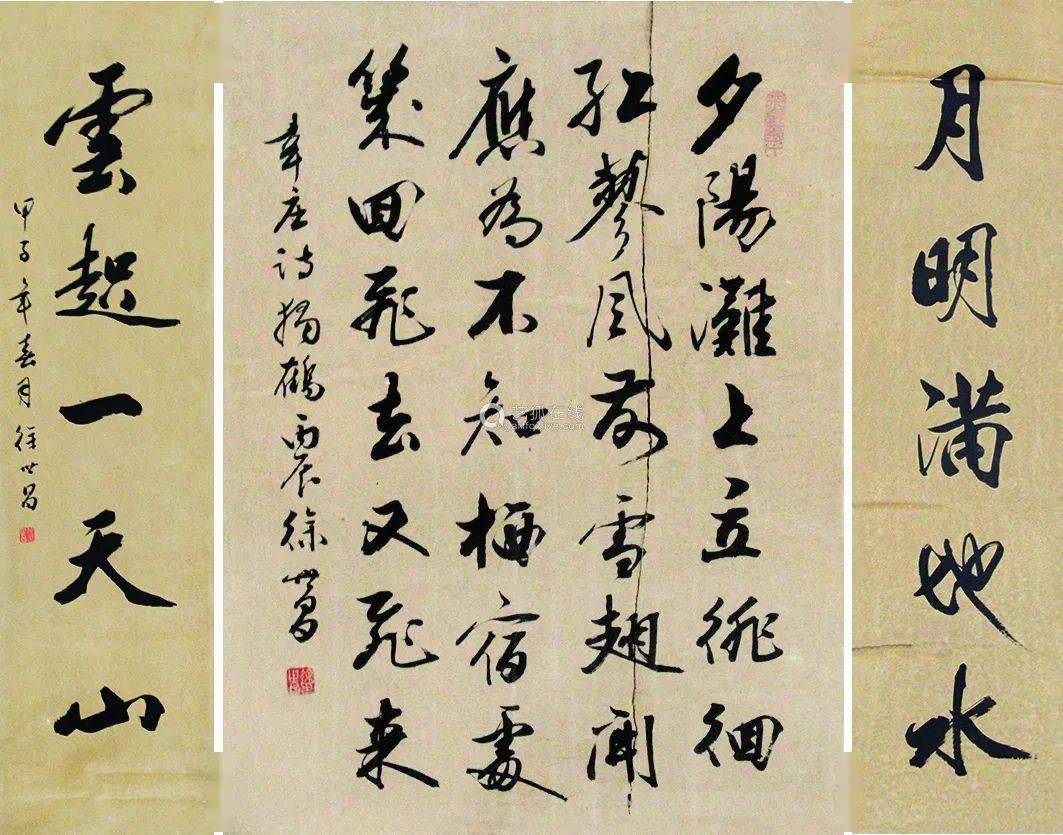 月明滿地水
夕陽灘上立徘徊
紅蓼風前雪翅開
應為不知栖宿處
幾回飛去又飛来
韋庄詩獨鶴丙辰徐世昌
雲起一天山
甲子年春月徐世昌
艺狐在线